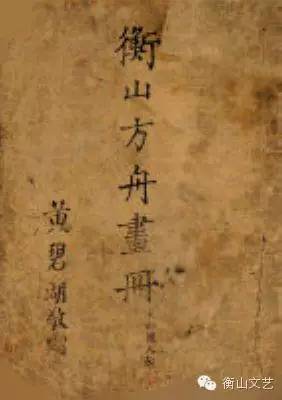 衡山方舟畫冊
黄碧湖敬
衡山文艺